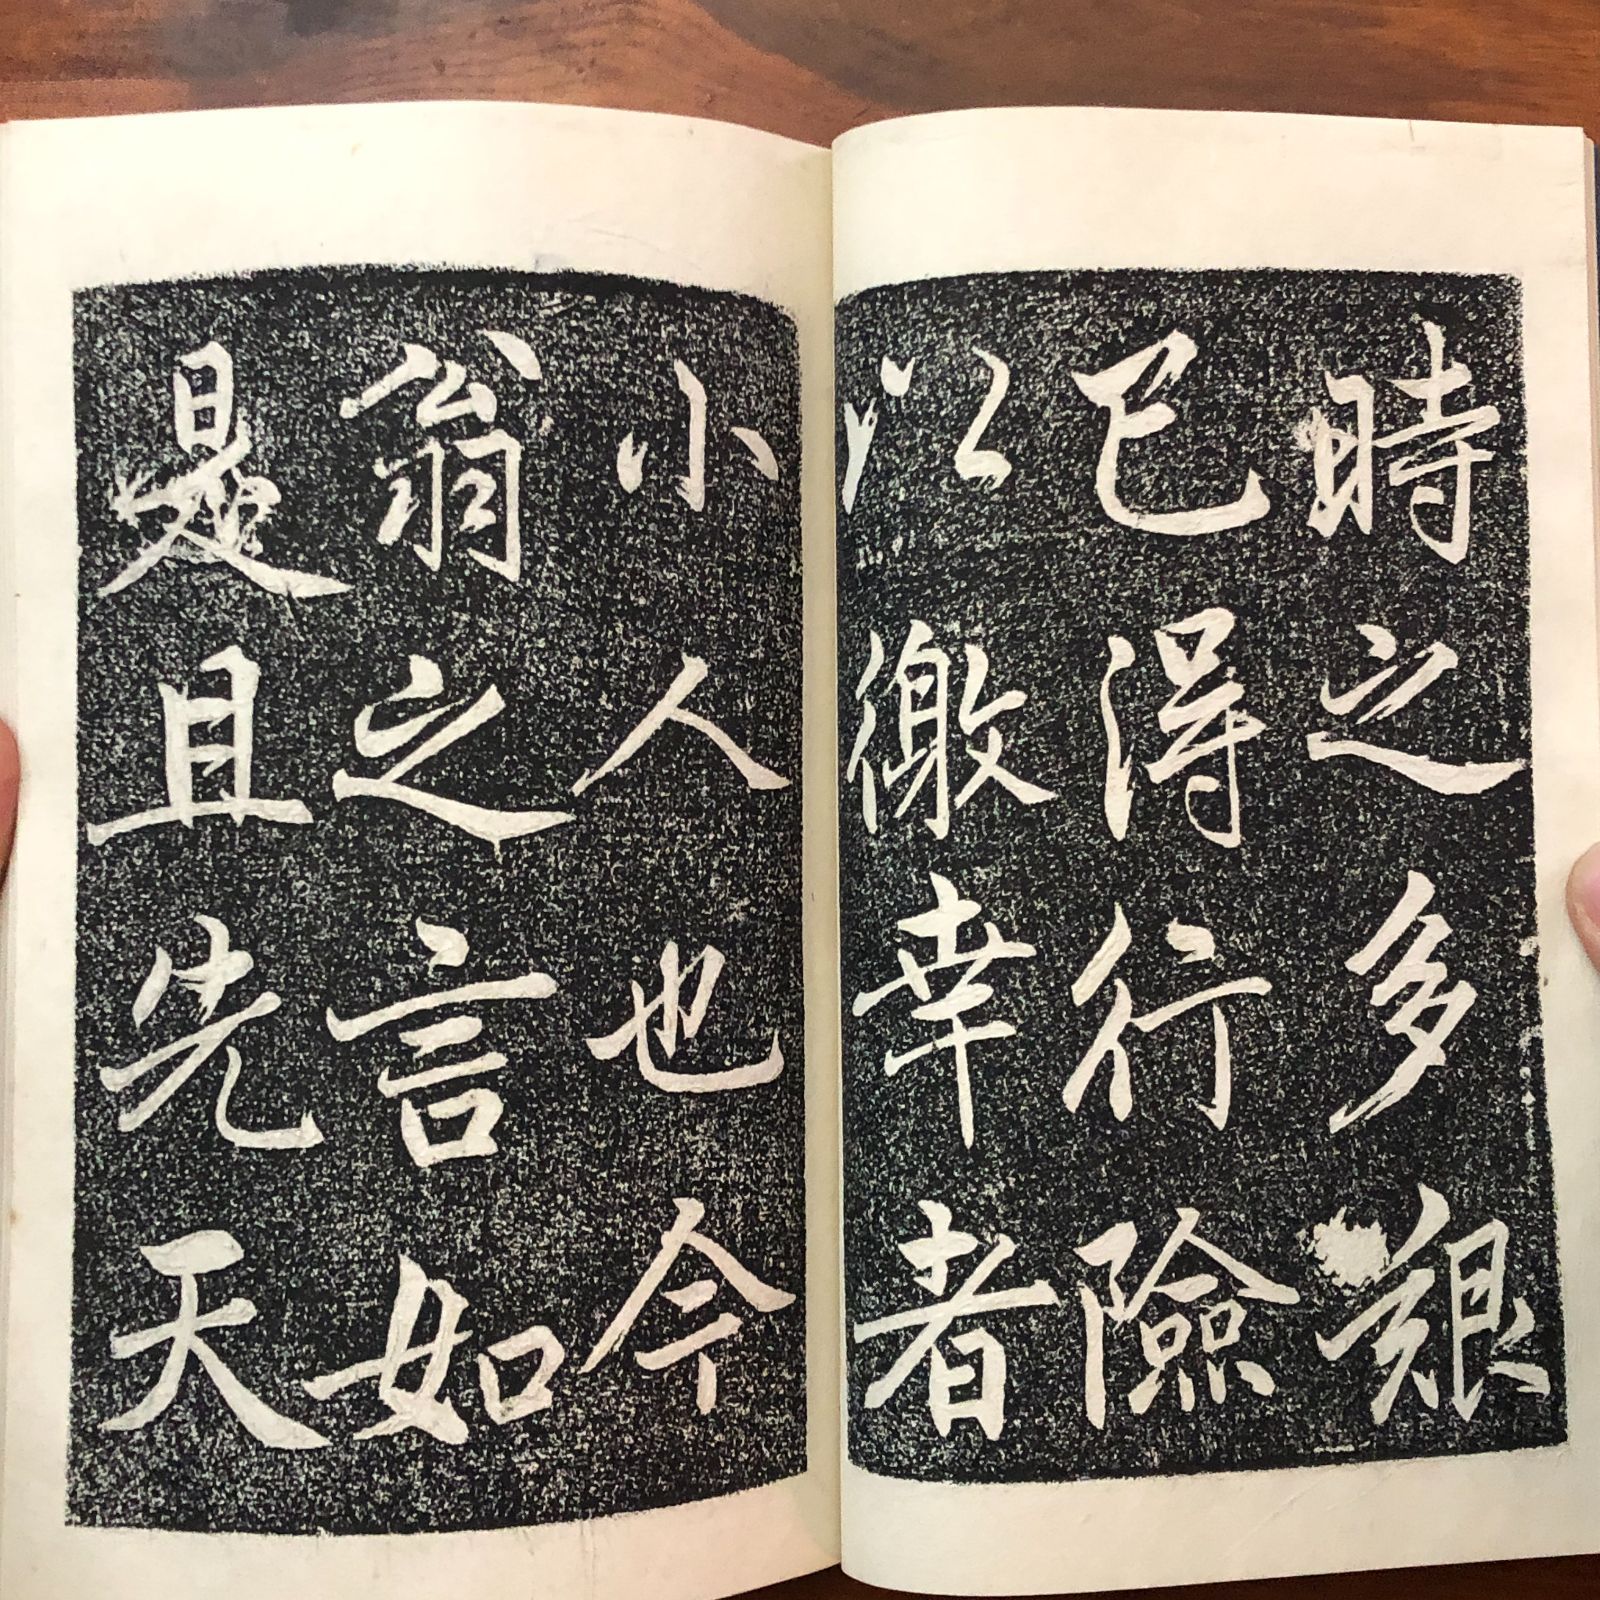 時之多艱
已得行險
以徼幸者
小人也今
翁之言如
是且先天